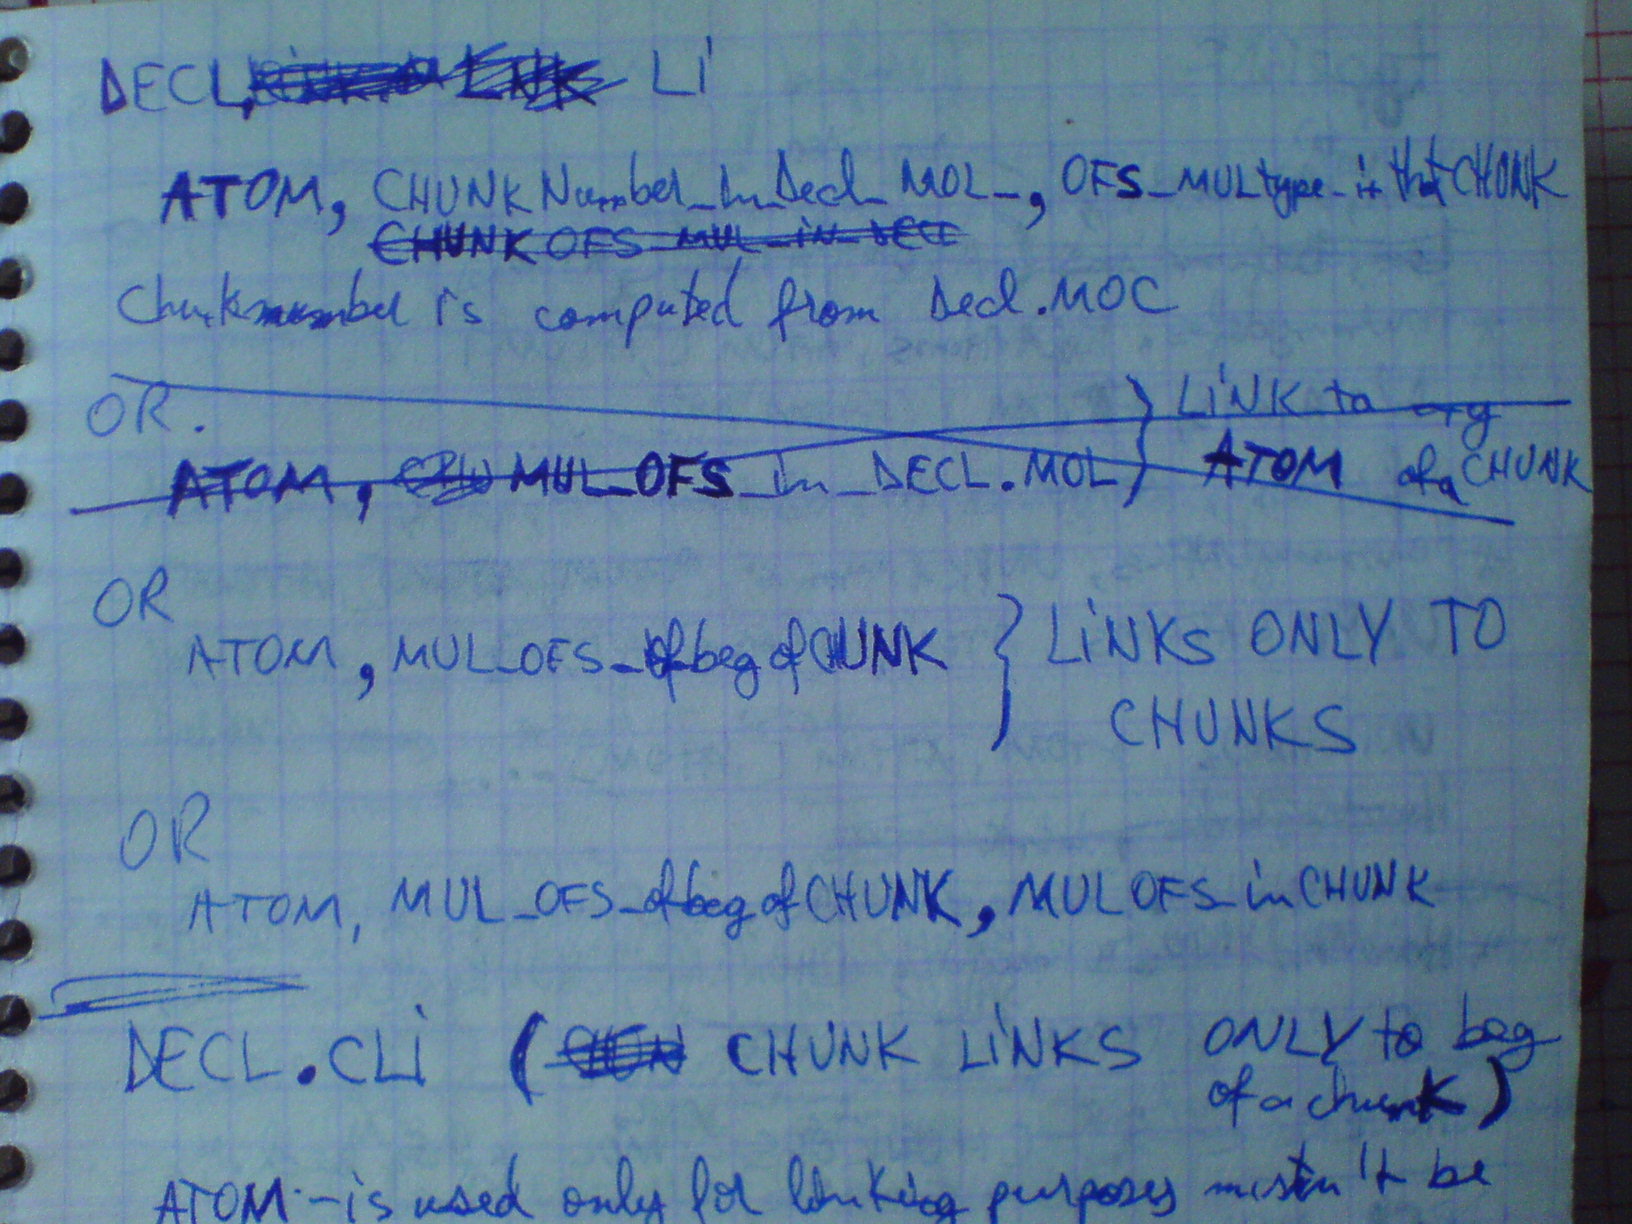 DECL. LINK LI
ATOM, CHUNKNumber_In_Decl_MOL_, OFS_MULtype_in that CHUNK
CHUNK OFS MUL_iN_DECL
Chunknumber is computed from Decl.MOC
OR. } LiNK to org
ATOM, MUL_OFS_In_DECL.MOL } ATOM of a CHUNK
OR
ATOM, MUL_OFS_of beg of CHUNK } LiNKs ONLY TO
CHUNKS
OR
ATOM, MUL_OFS_of beg of CHUNK, MULOFS_in CHUNK
DECL.CLi ( CHUNK LiNKS ONLY to beg
of a chunk)
ATOM - is used only for linking purposes mustn't be